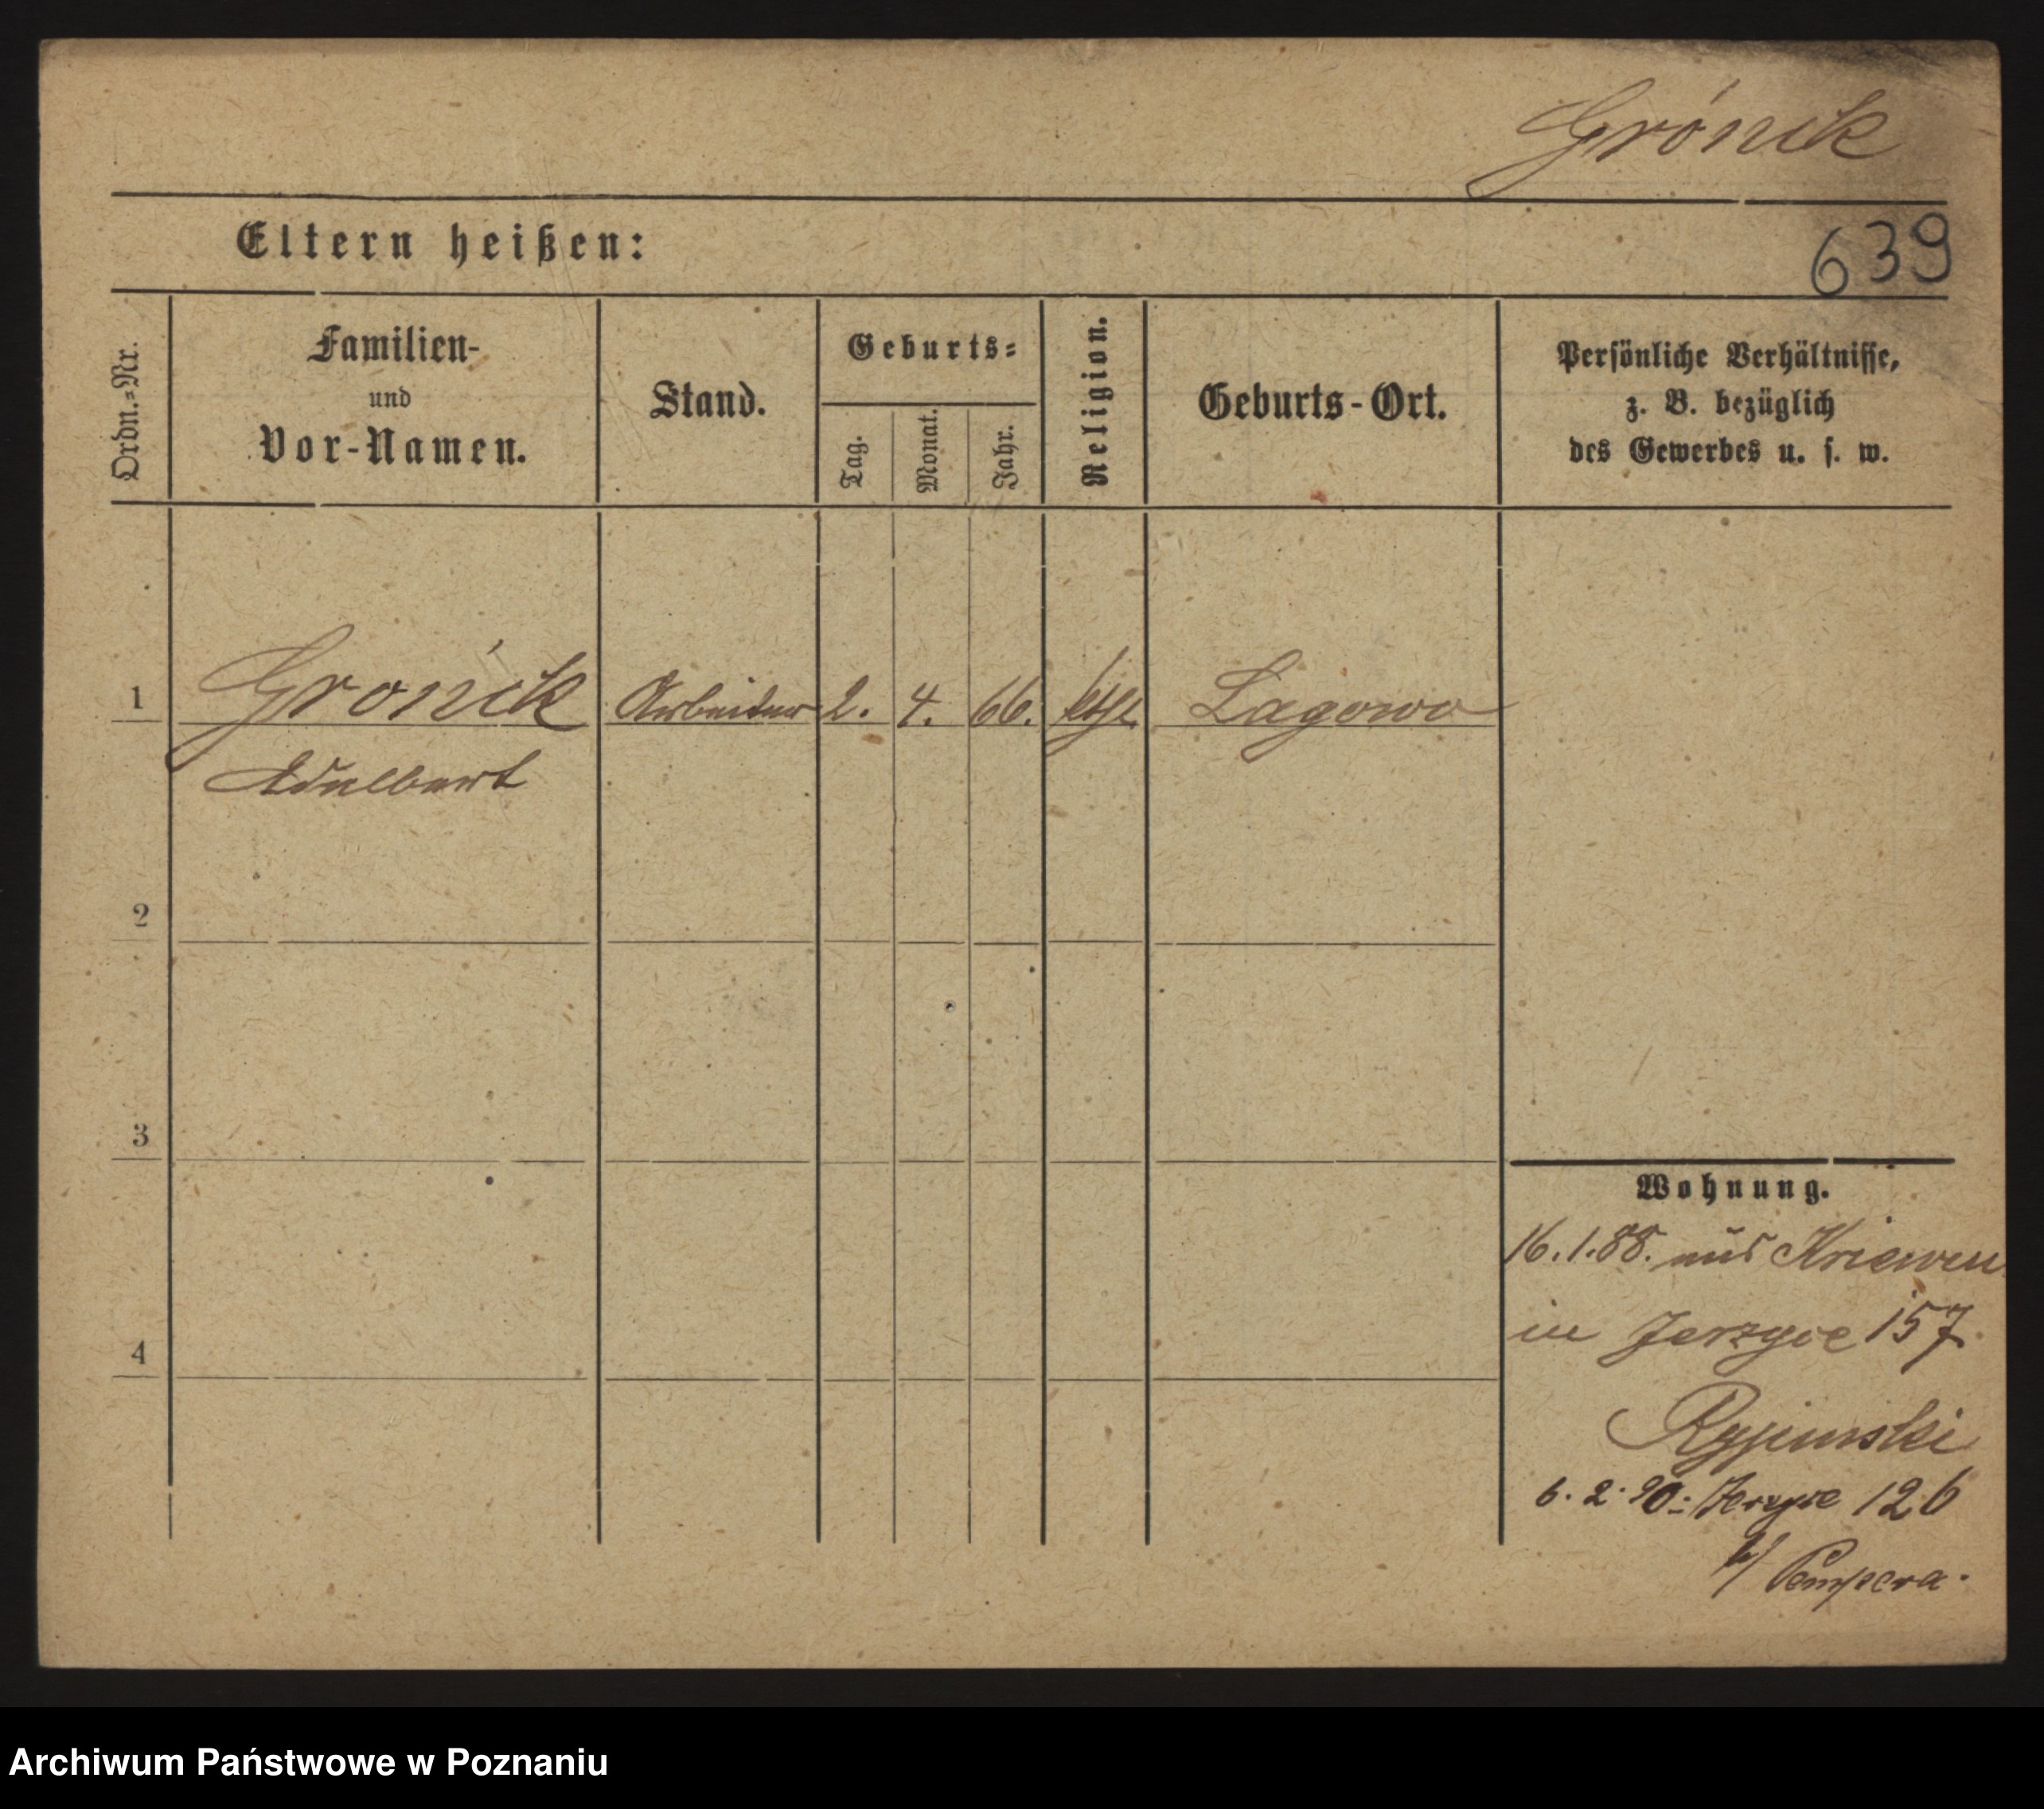 Grónik
Eltern heißen:
639
Ordn.-Nr.
Familien-
und
Vor-Namen.
Stand.
Geburts-
Tag.
Monat.
Jahr.
Religion.
Geburts-Ort.
Persönliche Verhältnisse,
z. B. bezüglich
des Gewerbes u. s. w.
1 Grónik Arbeiter 2. 4. 66. Lagowo
Adalbert
2
3
4
Wohnung.
16.1.88. aus Kriewen
in Jerzyce 157
6.2.90: Jerzyce 126
b/ Pempera.
Archiwum Państwowe w Poznaniu